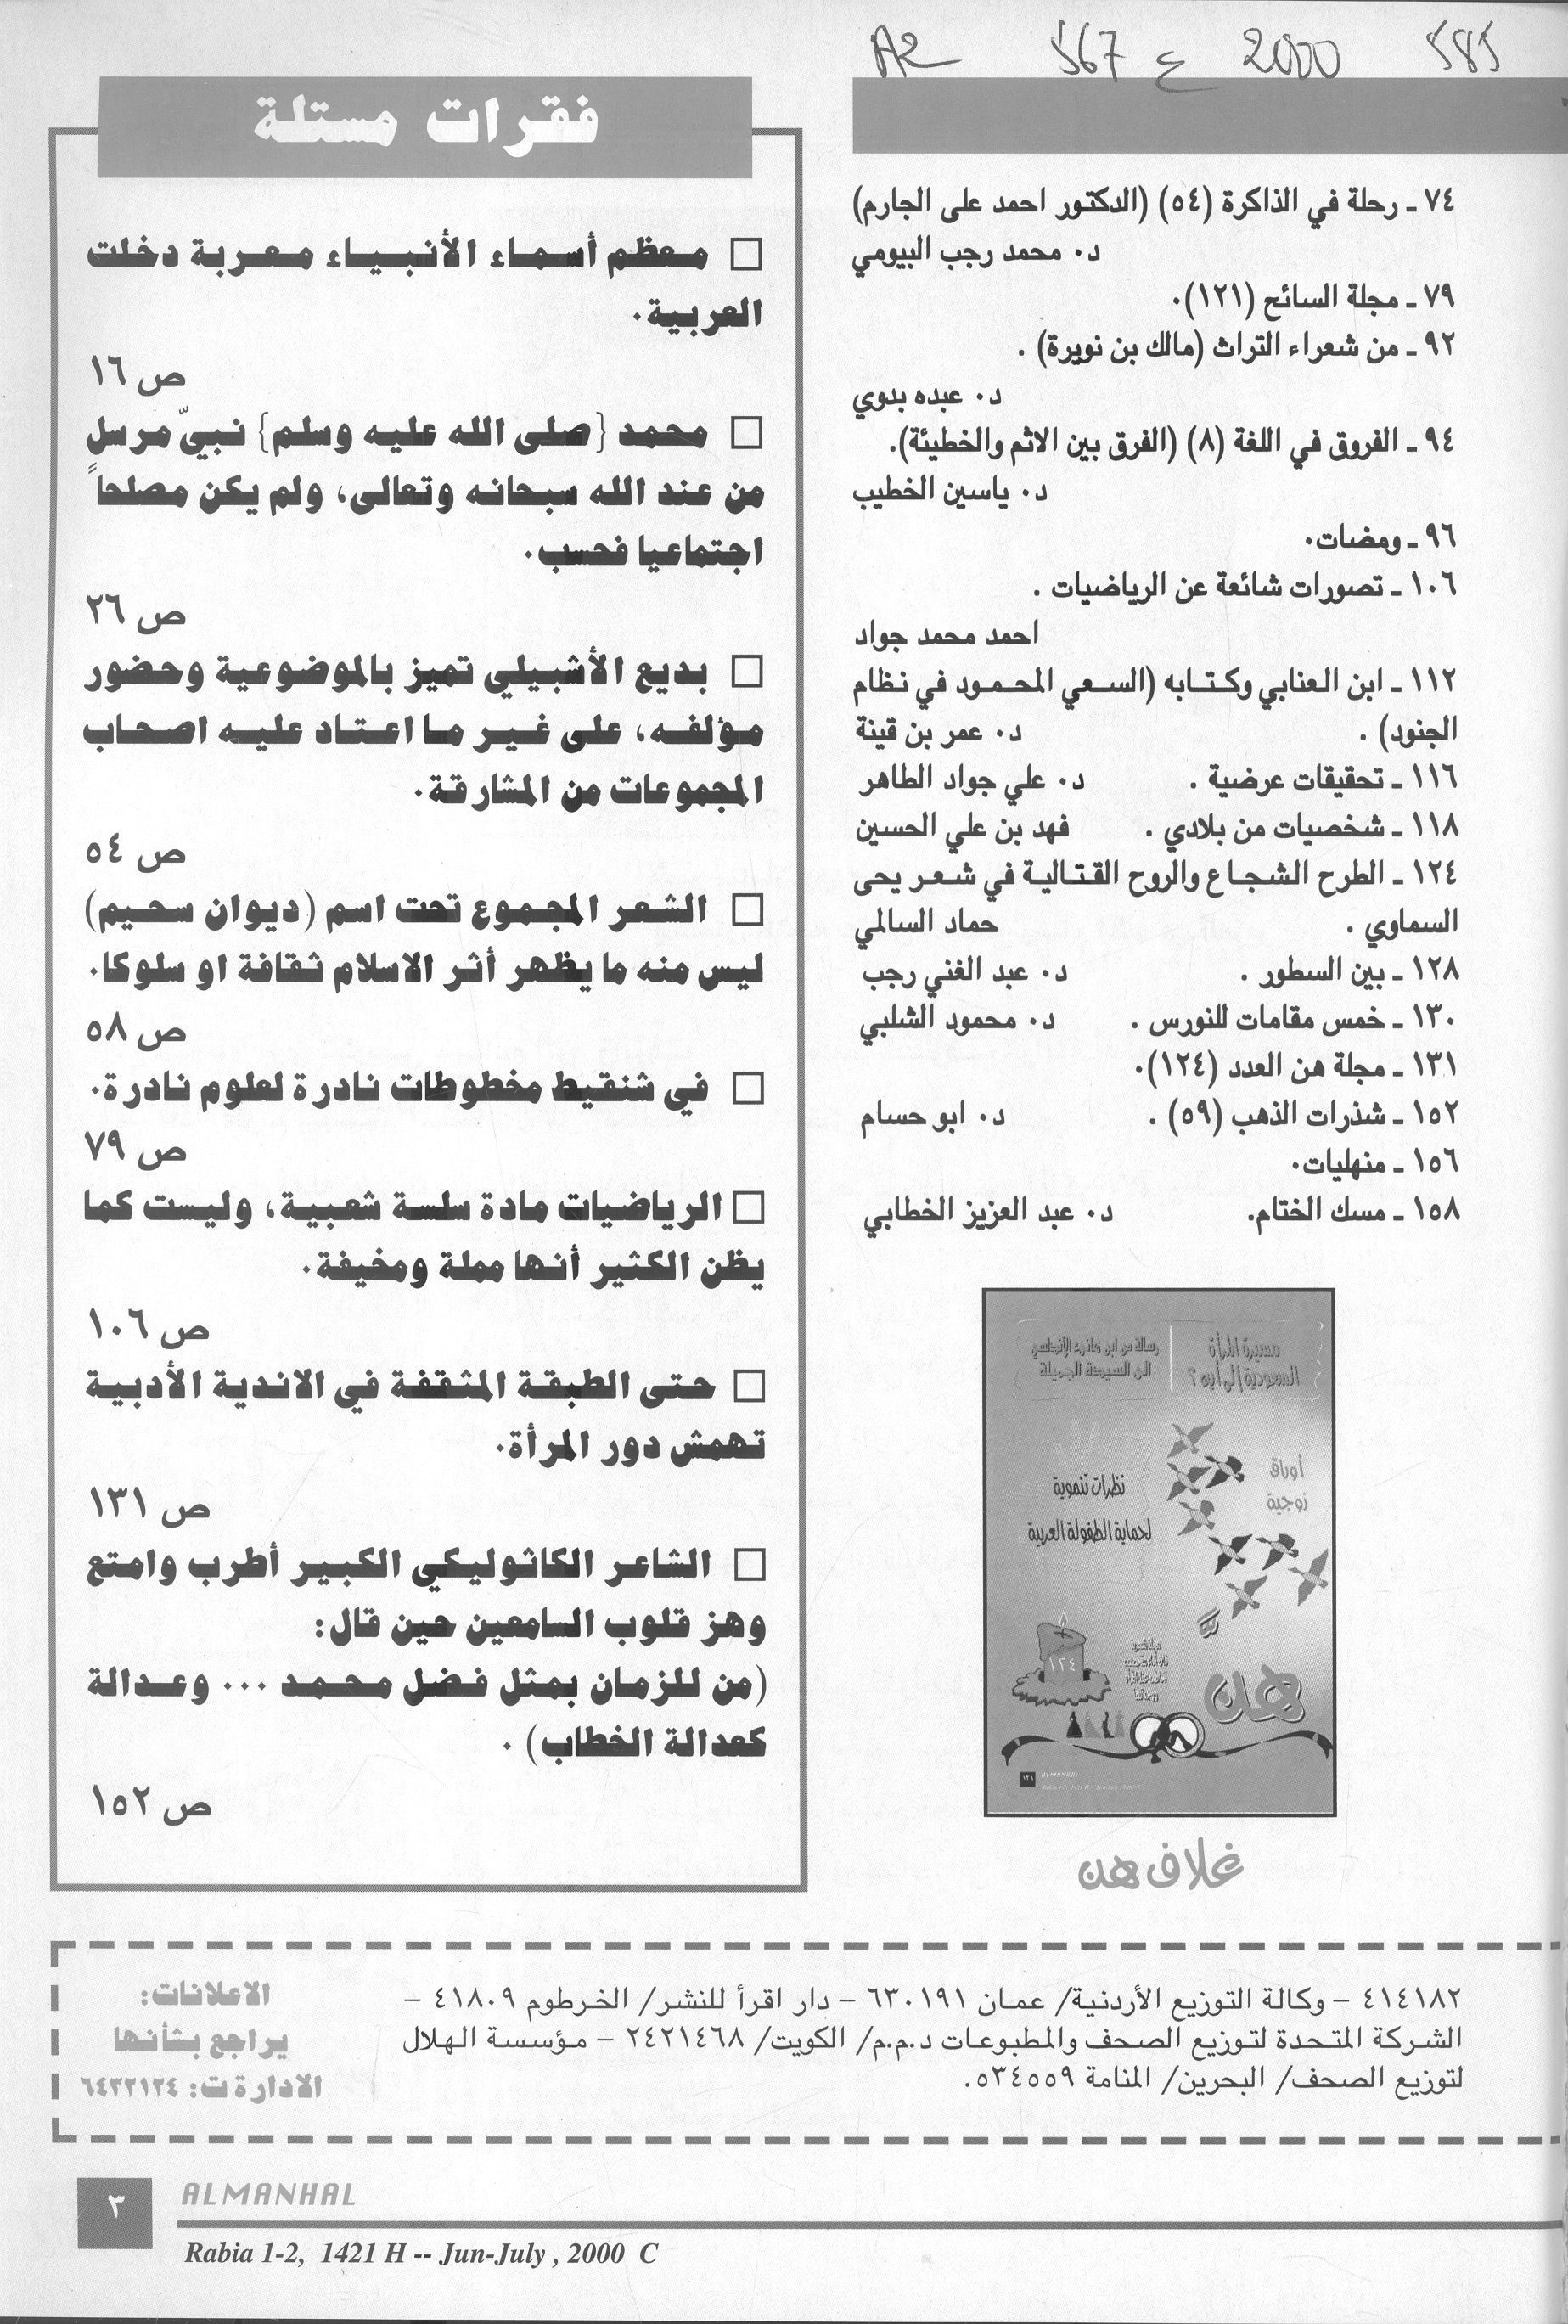 A2 567 ع 2000 585
٧٤ ـ رحلة في الذاكرة (٥٤) (الدكتور احمد على الجارم)
د٠ محمد رجب البيومي
٧٩ ـ مجلة السائح (١٢١)٠
٩٢ ـ من شعراء التراث (مالك بن نويرة) ٠
د٠ عبده بدوي
٩٤ ـ الفروق في اللغة (٨) (الفرق بين الاثم والخطيئة).
د٠ ياسين الخطيب
٩٦ ـ ومضات٠
١٠٦ ـ تصورات شائعة عن الرياضيات ٠
احمد محمد جواد
١١٢ ـ ابن العنابي وكتابه (السعي المحمود في نظام
الجنود) ٠ د٠ عمر بن قينة
١١٦ ـ تحقيقات عرضية ٠ د٠ علي جواد الطاهر
١١٨ ـ شخصيات من بلادي ٠ فهد بن علي الحسين
١٢٤ ـ الطرح الشجاع والروح القتالية في شعر يحى
السماوي ٠ حماد السالمي
١٢٨ ـ بين السطور ٠ د٠ عبد الغني رجب
١٣٠ ـ خمس مقامات للنورس ٠ د٠ محمود الشلبي
١٣١ ـ مجلة هن العدد (١٢٤)٠
١٥٢ ـ شذرات الذهب (٥٩) ٠ د٠ ابو حسام
١٥٦ ـ منهليات٠
١٥٨ ـ مسك الختام. د٠ عبد العزيز الخطابي
مسيرة المرأة
السعودية إلى أين؟
رسالة من ابن الأندلسي
الى السيدة الجميلة
أوراق
زوجية
نظرات تنموية
لحماية الطفولة العربية
١٢٤
هن
١٣١
ALMANHAL
غلاف هن
فقرات مستلة
□ معظم أسماء الأنبياء معربة دخلت
العربية٠
ص ١٦
□ محمد {صلى الله عليه وسلم} نبيّ مرسل
من عند الله سبحانه وتعالى، ولم يكن مصلحاً
اجتماعيا فحسب٠
ص ٢٦
□ بديع الأشبيلي تميز بالموضوعية وحضور
مؤلفه، على غير ما اعتاد عليه اصحاب
المجموعات من المشارقة٠
ص ٥٤
□ الشعر المجموع تحت اسم (ديوان سحيم)
ليس منه ما يظهر أثر الاسلام ثقافة او سلوكا٠
ص ٥٨
□ في شنقيط مخطوطات نادرة لعلوم نادرة٠
ص ٧٩
□ الرياضيات مادة سلسة شعبية، وليست كما
يظن الكثير أنها مملة ومخيفة٠
ص ١٠٦
□ حتى الطبقة المثقفة في الاندية الأدبية
تهمش دور المرأة٠
ص ١٣١
□ الشاعر الكاثوليكي الكبير أطرب وامتع
وهز قلوب السامعين حين قال:
(من للزمان بمثل فضل محمد ... وعدالة
كعدالة الخطاب) ٠
ص ١٥٢
٤١٤١٨٢ – وكالة التوزيع الأردنية/ عمان ٦٣٠١٩١ – دار اقرأ للنشر/ الخرطوم ٤١٨٠٩ –
الشركة المتحدة لتوزيع الصحف والمطبوعات د.م.م/ الكويت/ ٢٤٢١٤٦٨ – مؤسسة الهلال
لتوزيع الصحف/ البحرين/ المنامة ٥٣٤٥٥٩.
الاعلانات:
يراجع بشأنها
الادارة ت: ٦٤٣٢١٢٤
٣
ALMANHAL
Rabia 1-2, 1421 H -- Jun-July , 2000 C